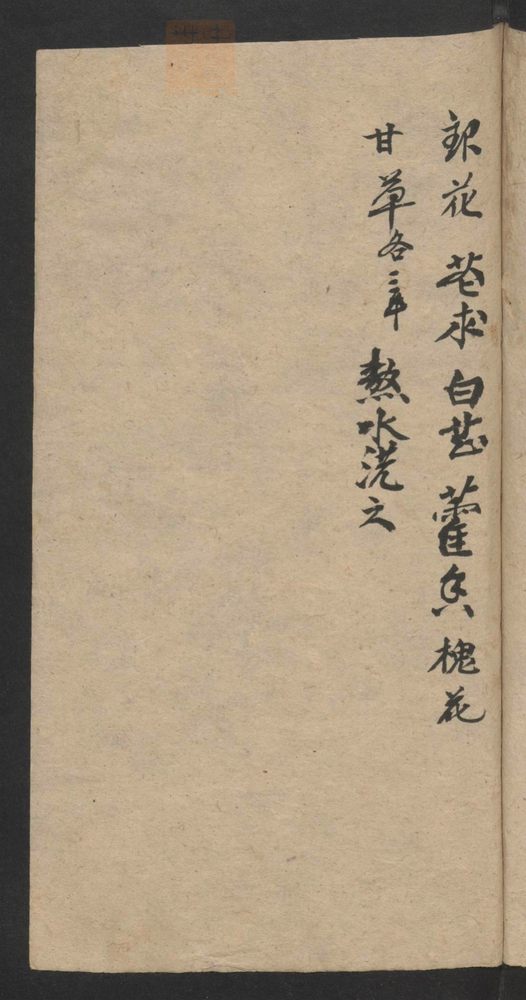 银花 苍术 白芷 藿香 槐花
甘草各三 熬水洗之